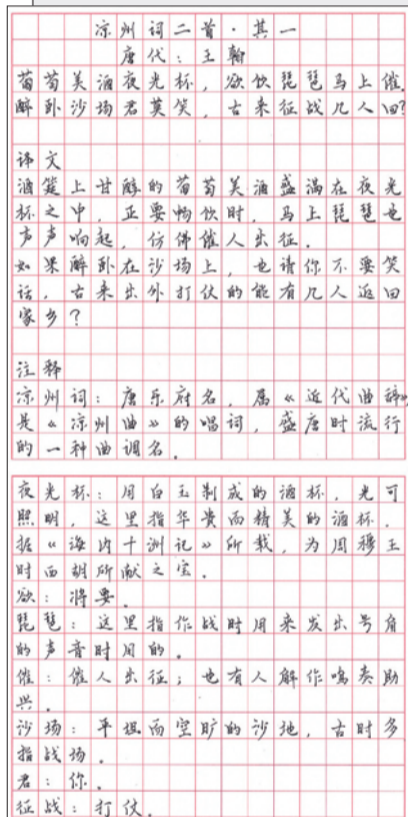 凉州词二首·其一
唐代：王翰
葡萄美酒夜光杯，欲饮琵琶马上催。
醉卧沙场君莫笑，古来征战几人回？
译文
酒筵上甘醇的葡萄美酒盛满在夜光
杯之中，正要畅饮时，马上琵琶也
声声响起，仿佛催人出征。
如果醉卧在沙场上，也请你不要笑
话，古来出外打仗的能有几人返回
家乡？
注释
凉州词：唐乐府名，属《近代曲辞》，
是《凉州曲》的唱词，盛唐时流行
的一种曲调名。
夜光杯：用白玉制成的酒杯，光可
照明，这里指华贵而精美的酒杯。
据《海内十洲记》所载，为周穆王
时西胡所献之宝。
欲：将要。
琵琶：这里指作战时用来发出号角
的声音时用的。
催：催人出征；也有人解作鸣奏助
兴。
沙场：平坦而空旷的沙地，古时多
指战场。
君：你。
征战：打仗。